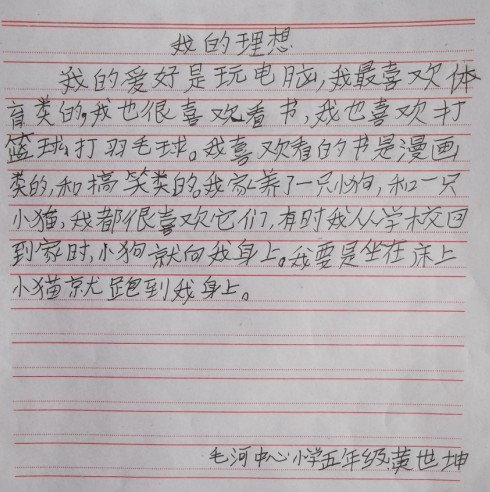 我的理想
我的爱好是玩电脑,我最喜欢体
育类的,我也很喜欢看书,我也喜欢打
篮球,打羽毛球。我喜欢看的书是漫画
类的,和搞笑类的。我家养了一只小狗,和一只
小猫,我都很喜欢它们,有时我从学校回
到家时,小狗就向我身上。我要是坐在床上
小猫就跑到我身上。
毛河中心小学五年级:黄世坤